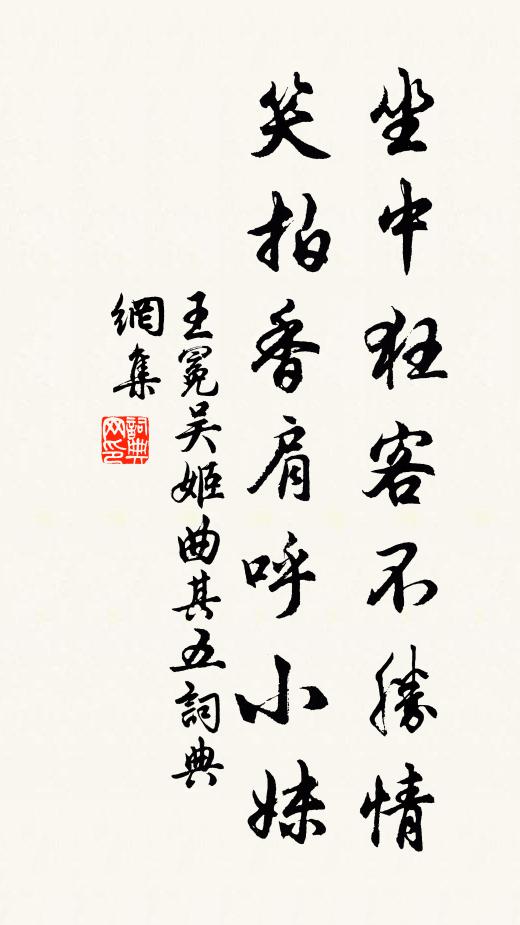 坐中狂客不勝情
笑拍香肩呼小妹
王冕吴姬曲其五詞典
網集
詞典
网印